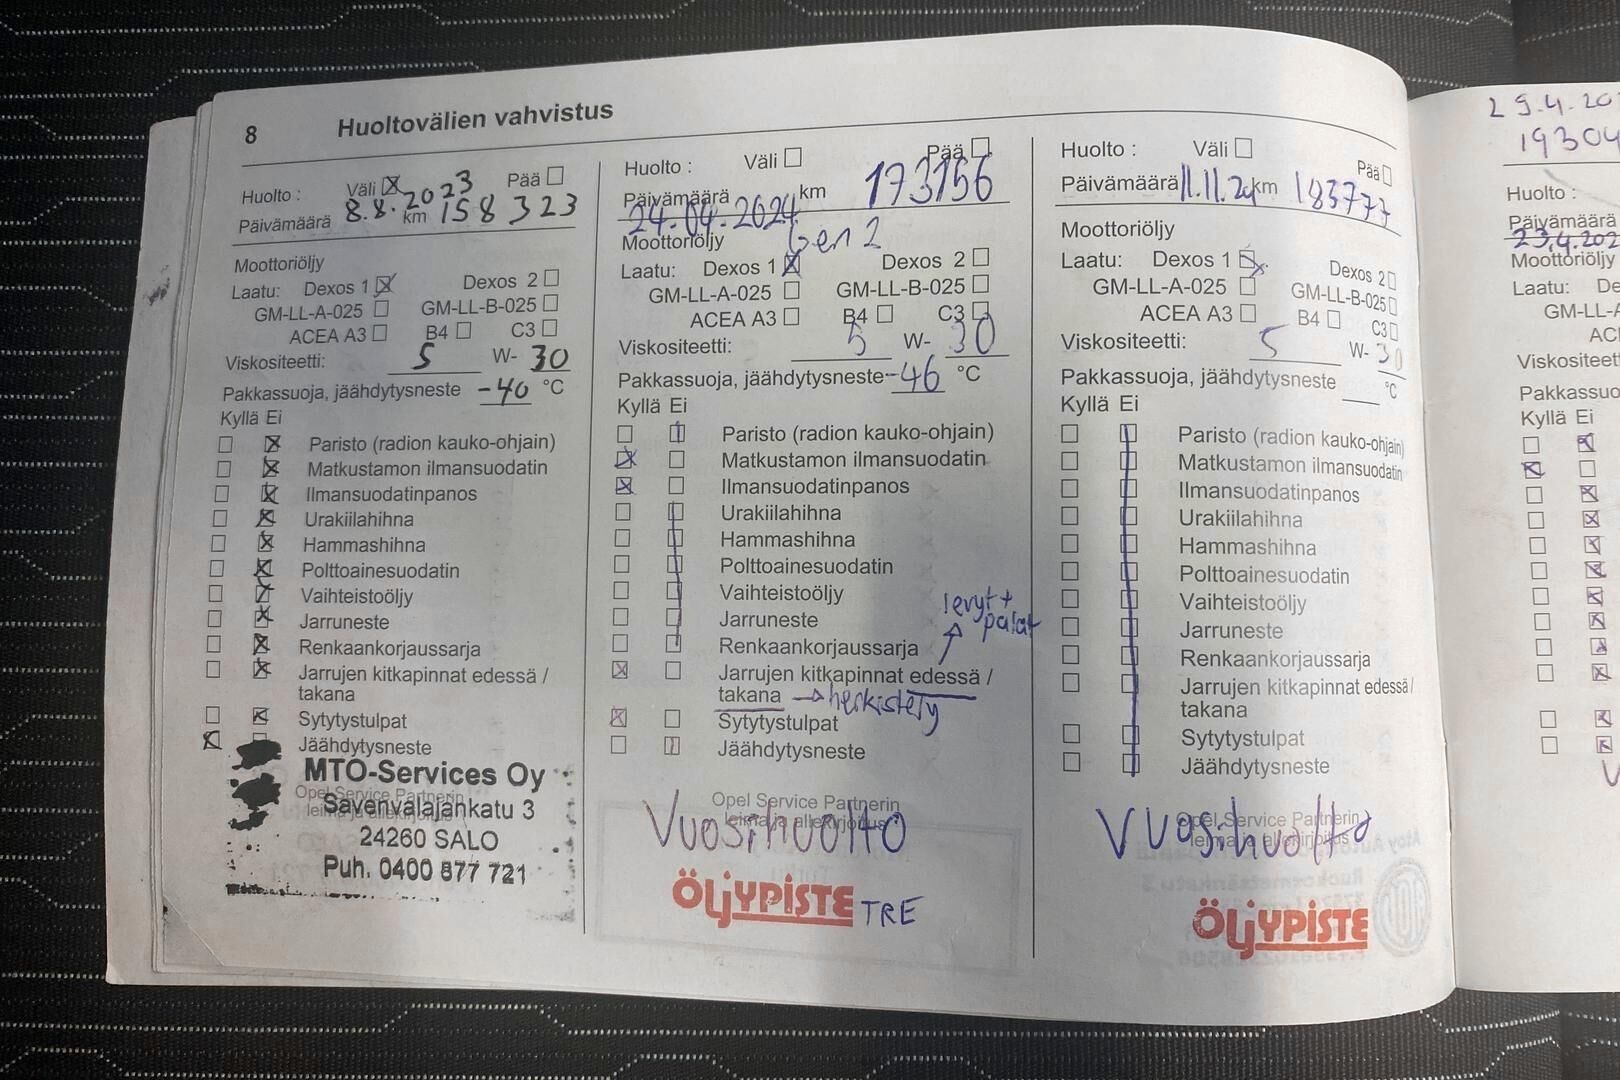 8 Huoltovälien vahvistus
Huolto : Väli Pää
Päivämäärä 8.8.2023 km 158 323
Moottoriöljy
Laatu: Dexos 1 Dexos 2
GM-LL-A-025 GM-LL-B-025
ACEA A3 B4 C3
Viskositeetti: 5 W- 30
Pakkassuoja, jäähdytysneste -40 °C
Kyllä Ei
Paristo (radion kauko-ohjain)
Matkustamon ilmansuodatin
Ilmansuodatinpanos
Urakiilahihna
Hammashihna
Polttoainesuodatin
Vaihteistoöljy
Jarruneste
Renkaankorjaussarja
Jarrujen kitkapinnat edessä /
takana
Sytytystulpat
Jäähdytysneste
Opel Service Partnerin
MTO-Services Oy
Savenvalajankatu 3
24260 SALO
Puh. 0400 877 721
Huolto : Väli Pää
Päivämäärä 24.04.2024 km 173156
Moottoriöljy Gen 2
Laatu: Dexos 1 Dexos 2
GM-LL-A-025 GM-LL-B-025
ACEA A3 B4 C3
Viskositeetti: 5 W- 30
Pakkassuoja, jäähdytysneste -46 °C
Kyllä Ei
Paristo (radion kauko-ohjain)
Matkustamon ilmansuodatin
Ilmansuodatinpanos
Urakiilahihna
Hammashihna
Polttoainesuodatin
Vaihteistoöljy
levyt +
palat
Jarruneste
Renkaankorjaussarja
Jarrujen kitkapinnat edessä /
takana → herkistely
Sytytystulpat
Jäähdytysneste
Opel Service Partnerin
leima ja allekirjoitus
Vuosihuolto
ÖLJYPISTE TRE
Huolto : Väli Pää
Päivämäärä 11.11.24 km 183777
Moottoriöljy
Laatu: Dexos 1 Dexos 2
GM-LL-A-025 GM-LL-B-025
ACEA A3 B4 C3
Viskositeetti: 5 W- 30
Pakkassuoja, jäähdytysneste °C
Kyllä Ei
Paristo (radion kauko-ohjain)
Matkustamon ilmansuodatin
Ilmansuodatinpanos
Urakiilahihna
Hammashihna
Polttoainesuodatin
Vaihteistoöljy
Jarruneste
Renkaankorjaussarja
Jarrujen kitkapinnat edessä /
takana
Sytytystulpat
Jäähdytysneste
Opel Service Partnerin
leima ja allekirjoitus
Vuosihuolto
ÖLJYPISTE
29.4.20
19304
Huolto :
Päivämäärä
23.4.202
Moottoriöljy
Laatu: De
GM-LL-A
AC
Viskositeet
Pakkassuo
Kyllä Ei